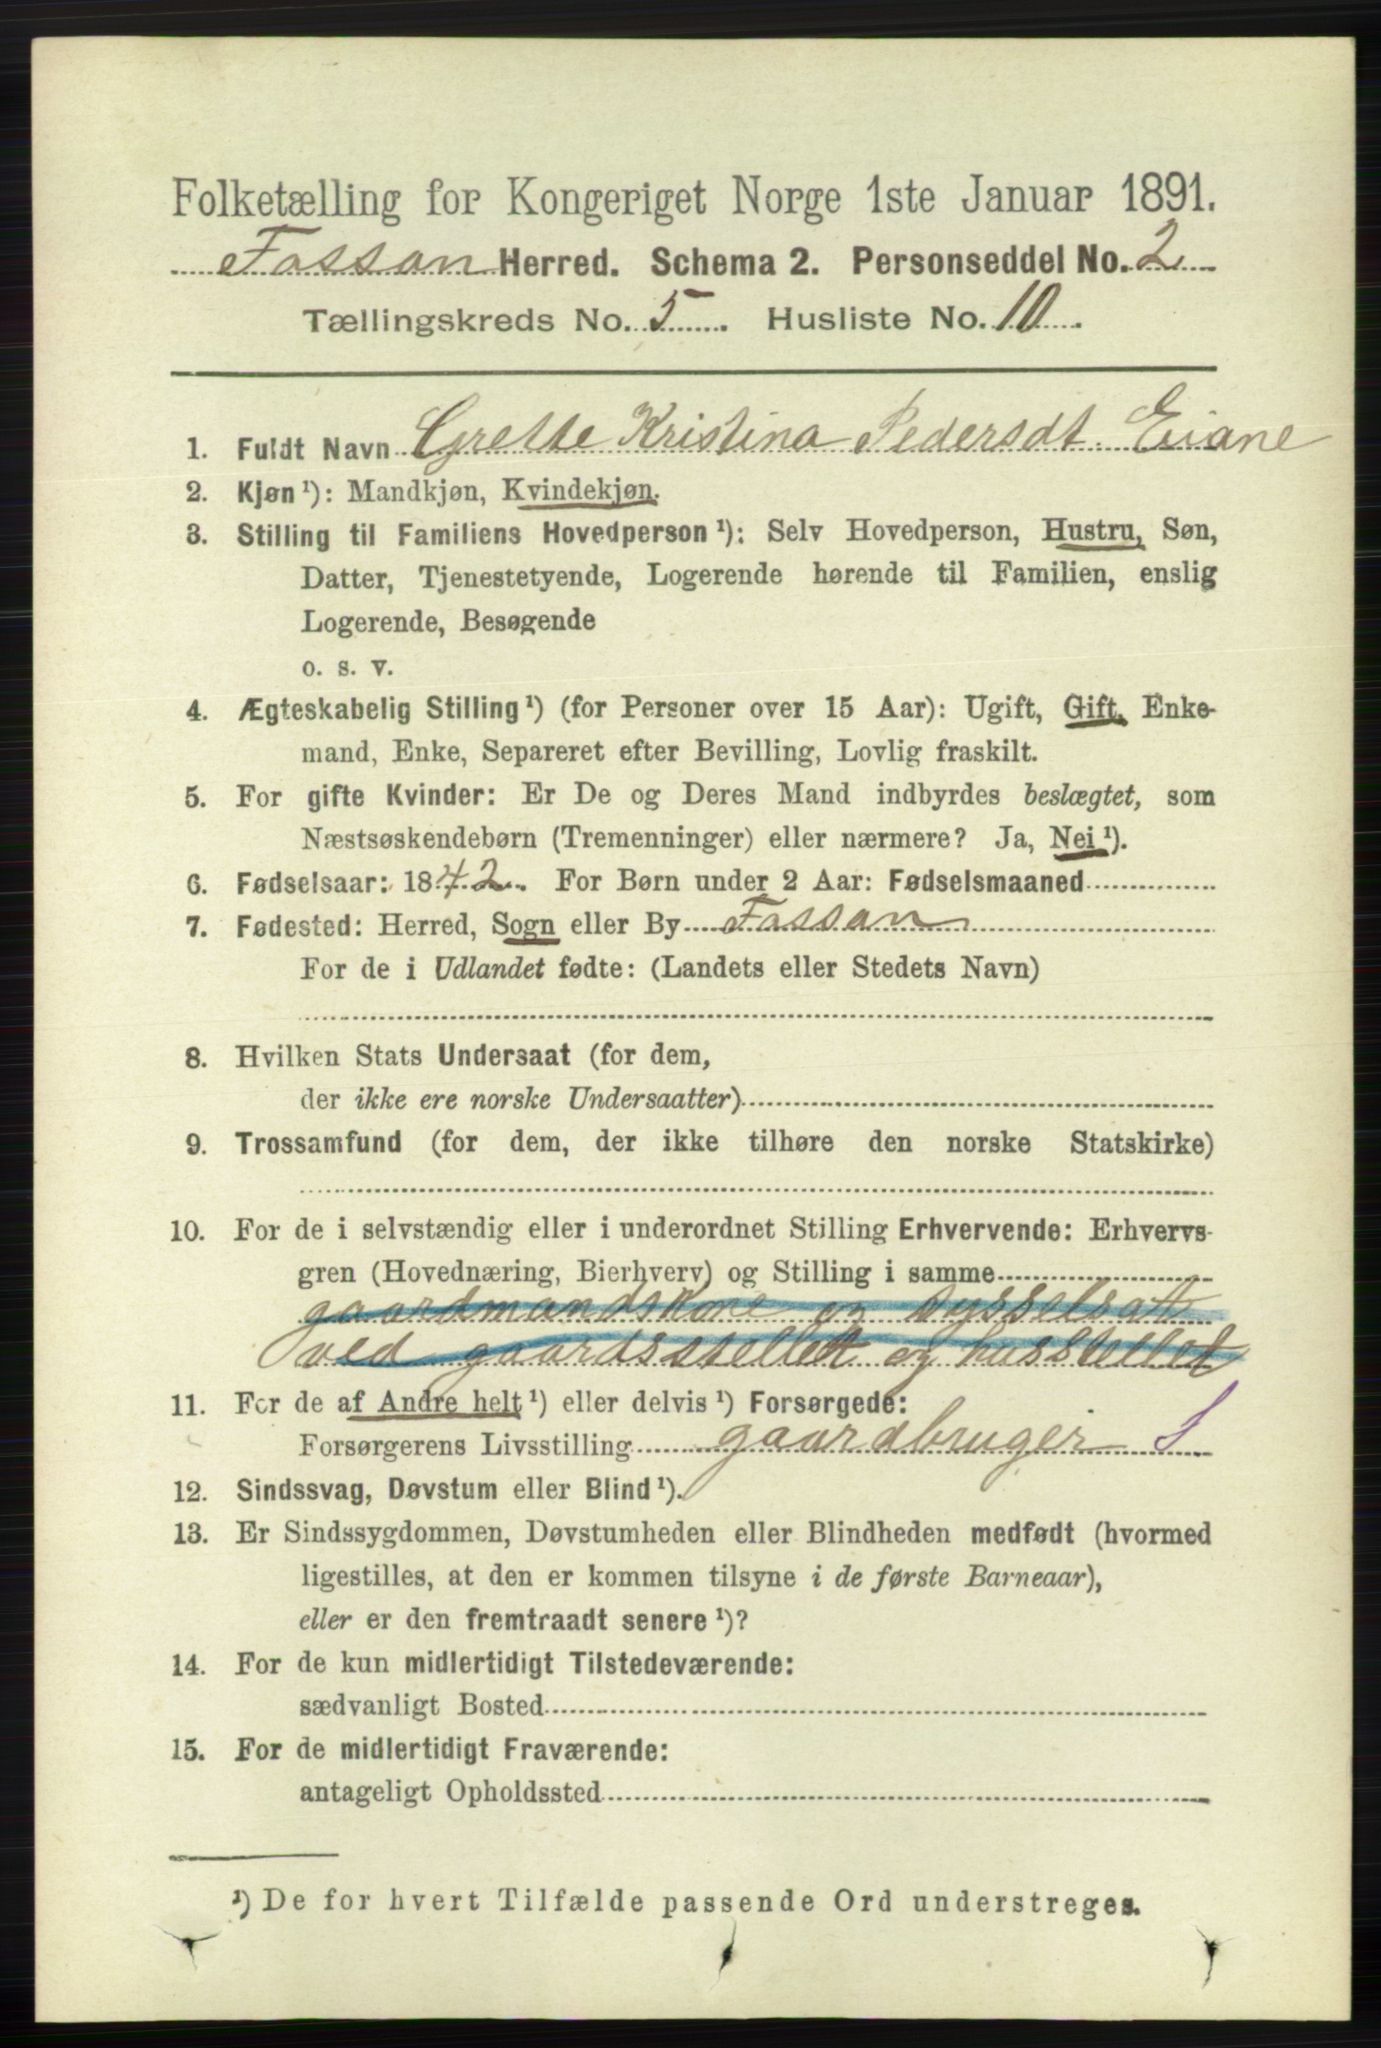 Folketælling for Kongeriget Norge 1ste Januar 1891.
Fossan Herred. Schema 2. Personseddel No. 2
Tællingskreds No. 5. Husliste No. 10.
1. Fuldt Navn Grette Kristina Pedersdt. Eiane
2. Kjøn ¹): Mandkjøn, Kvindekjøn.
3. Stilling til Familiens Hovedperson ¹): Selv Hovedperson, Hustru, Søn,
Datter, Tjenestetyende, Logerende hørende til Familien, enslig
Logerende, Besøgende
o. s. v.
4. Ægteskabelig Stilling ¹) (for Personer over 15 Aar): Ugift, Gift, Enke-
mand, Enke, Separeret efter Bevilling, Lovlig fraskilt.
5. For gifte Kvinder: Er De og Deres Mand indbyrdes beslægtet, som
Næstsøskendebørn (Tremenninger) eller nærmere? Ja, Nei ¹).
6. Fødselsaar: 1842. For Børn under 2 Aar: Fødselsmaaned
7. Fødested: Herred, Sogn eller By Fossan
For de i Udlandet fødte: (Landets eller Stedets Navn)
8. Hvilken Stats Undersaat (for dem,
der ikke ere norske Undersaatter)
9. Trossamfund (for dem, der ikke tilhøre den norske Statskirke)
10. For de i selvstændig eller i underordnet Stilling Erhvervende: Erhvervs-
gren (Hovednæring, Bierhverv) og Stilling i samme
gaardmandskone og sysselsatt
ved gaardsstellet og husstellet
11. For de af Andre helt ¹) eller delvis ¹) Forsørgede:
Forsørgerens Livsstilling gaardbruger S
12. Sindssvag, Døvstum eller Blind ¹).
13. Er Sindssygdommen, Døvstumheden eller Blindheden medfødt (hvormed
ligestilles, at den er kommen tilsyne i de første Barneaar),
eller er den fremtraadt senere ¹)?
14. For de kun midlertidigt Tilstedeværende:
sædvanligt Bosted
15. For de midlertidigt Fraværende:
antageligt Opholdssted
¹) De for hvert Tilfælde passende Ord understreges.